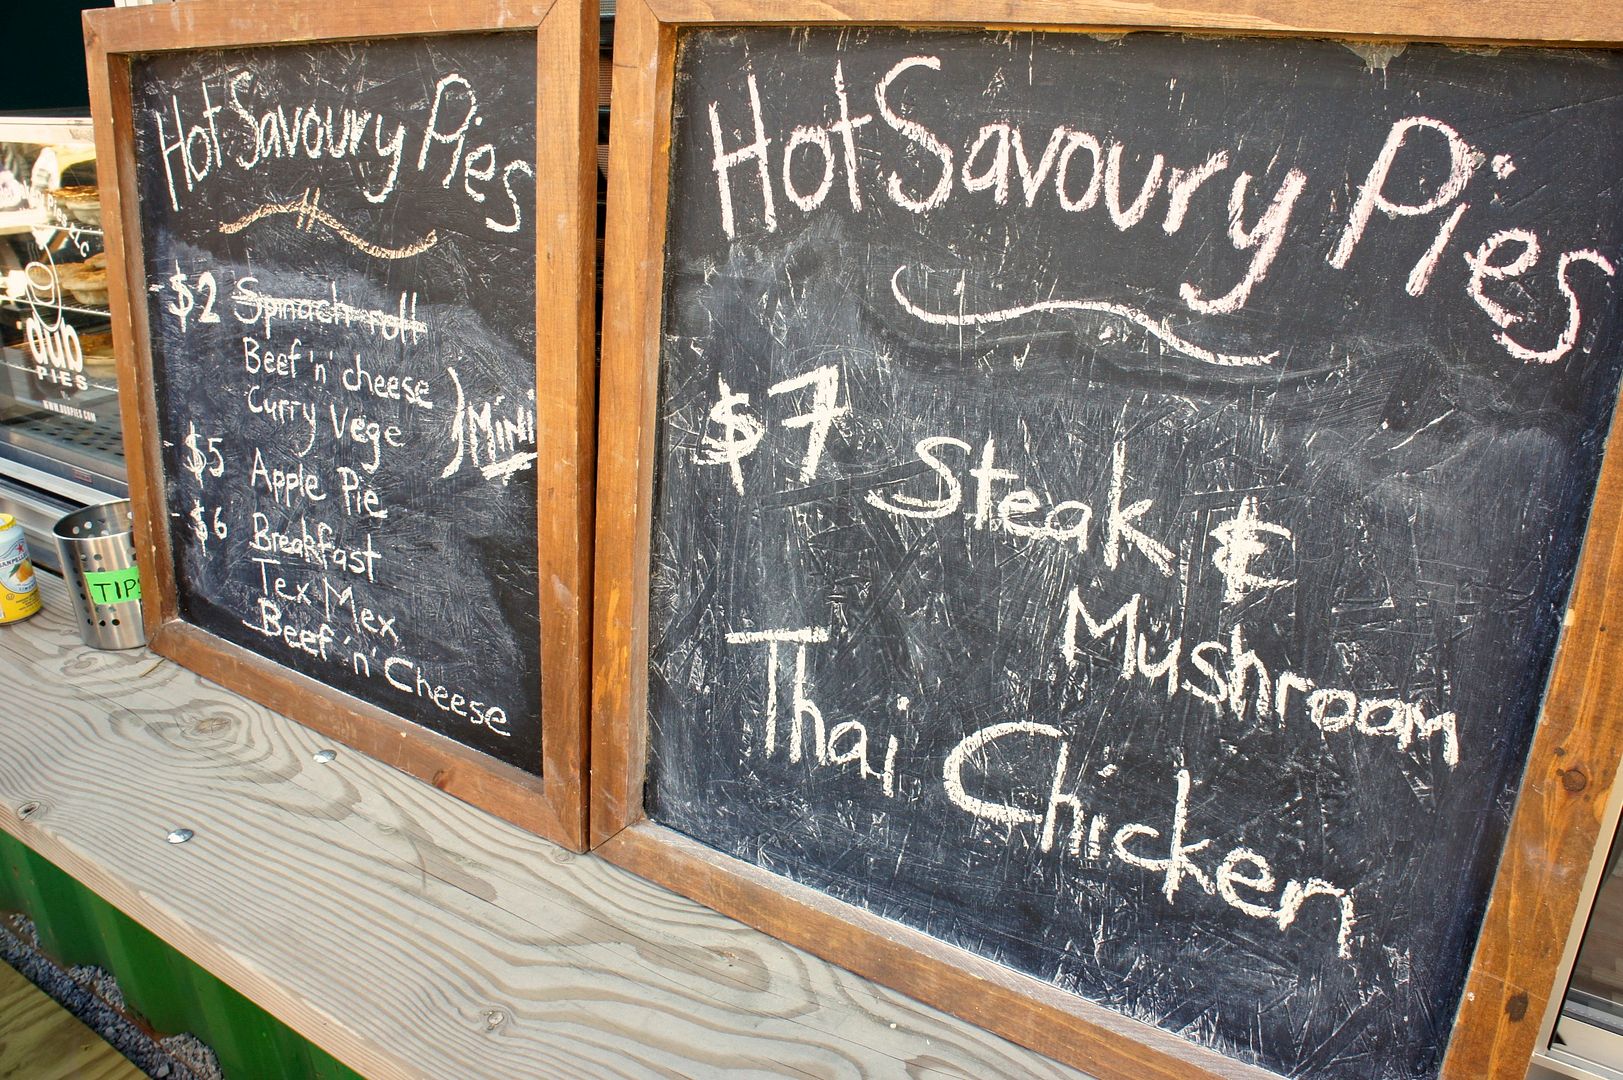 Hot Savoury Pies
- $2 Spinach roll
Beef 'n' cheese
Curry Vege
Mini
- $5 Apple Pie
- $6 Breakfast
Tex Mex
Beef 'n' Cheese
Hot Savoury Pies
$7 Steak &
Mushroom
Thai Chicken
dub
PIES
WWW.DUBPIES.COM
TIPS